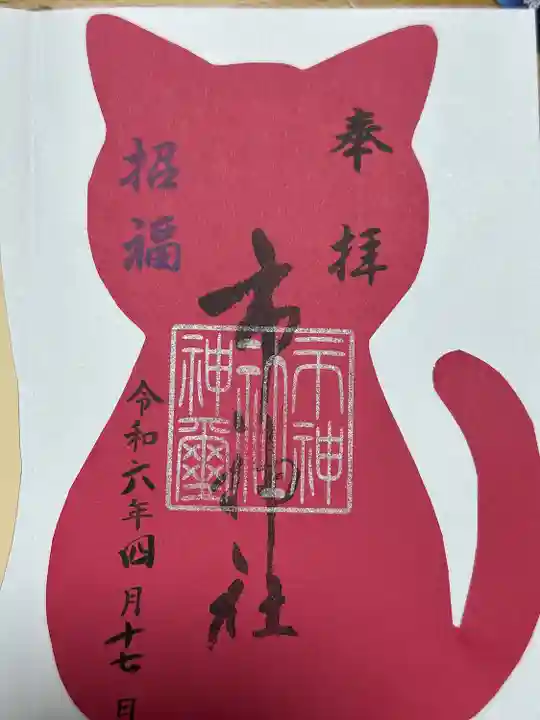 奉拝
市神社
市神社神璽
招福
令和六年四月十七日